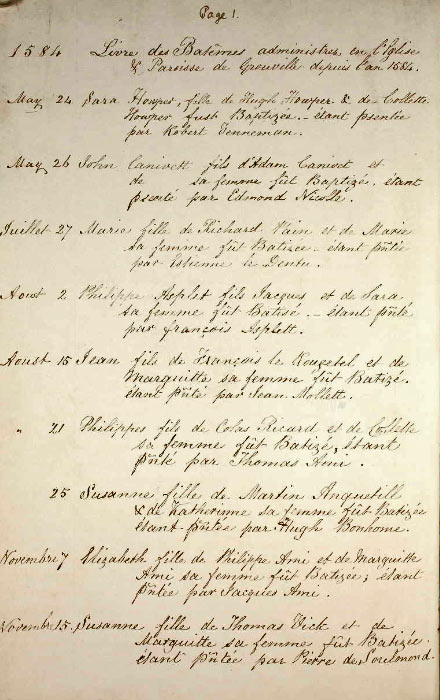 Page 1.
1584 Livre des Batêmes administrez en l'Eglise
& Paroisse de Grouville depuis l'an 1584.
May 24 Sara Hooper, fille de Hugh Hooper & de Collette
Hooper fust Baptizée. - étant psentée
par Robert Jenneman.
May 26 John Canivett fils d'Adam Canivet et
de sa femme fût Baptizé. étant
psenté par Edmond Nicolle.
Juillet 27 Marie fille de Richard Vain et de Marie
sa femme fût Batizee - étant pñtée
par Estienne le Dentu.
Aout 2 Philippe Asplet fils Jacques et de Sara
sa femme fût Batisé. - étant pñté
par françois Asplett.
Aoust 15 Jean fils de François le Rougetel et de
Marguitte sa femme fût Batizé.
étant pñté par Jean Mollett.
" 21 Philippes fils de Colas Ricard et de Collette
sa femme fût Batizé, étant
pñté par Thomas Ami.
25 Susanne fille de Martin Anquetill
& de Katherinne sa femme fût Batizée
étant pñtée par Hugh Bonhome.
Novembre 7 Elizabeth fille de Philippe Ami et de Marguitte
Ami sa femme fût Batizée; étant
pñtée par Jacques Ami.
Novembre 15. Susanne fille de Thomas Vick et de
Marguitte sa femme fût Batizée.
étant pñtée par Pierre de Soulmond.